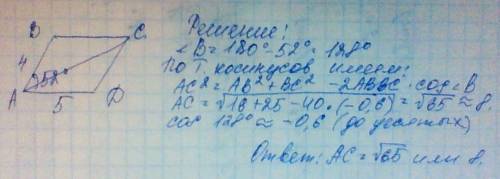 Решение:
B C
∠B = 180° - 52° = 128°
4
52°
По т. косинусов имеем:
A 5 D
AC² = AB² + BC² - 2AB·BC · cos∠B
AC = √16 + 25 - 40 · (-0,6) = √65 ≈ 8
cos 128° ≈ -0,6 (до десятых)
Ответ: AC = √65 или 8.